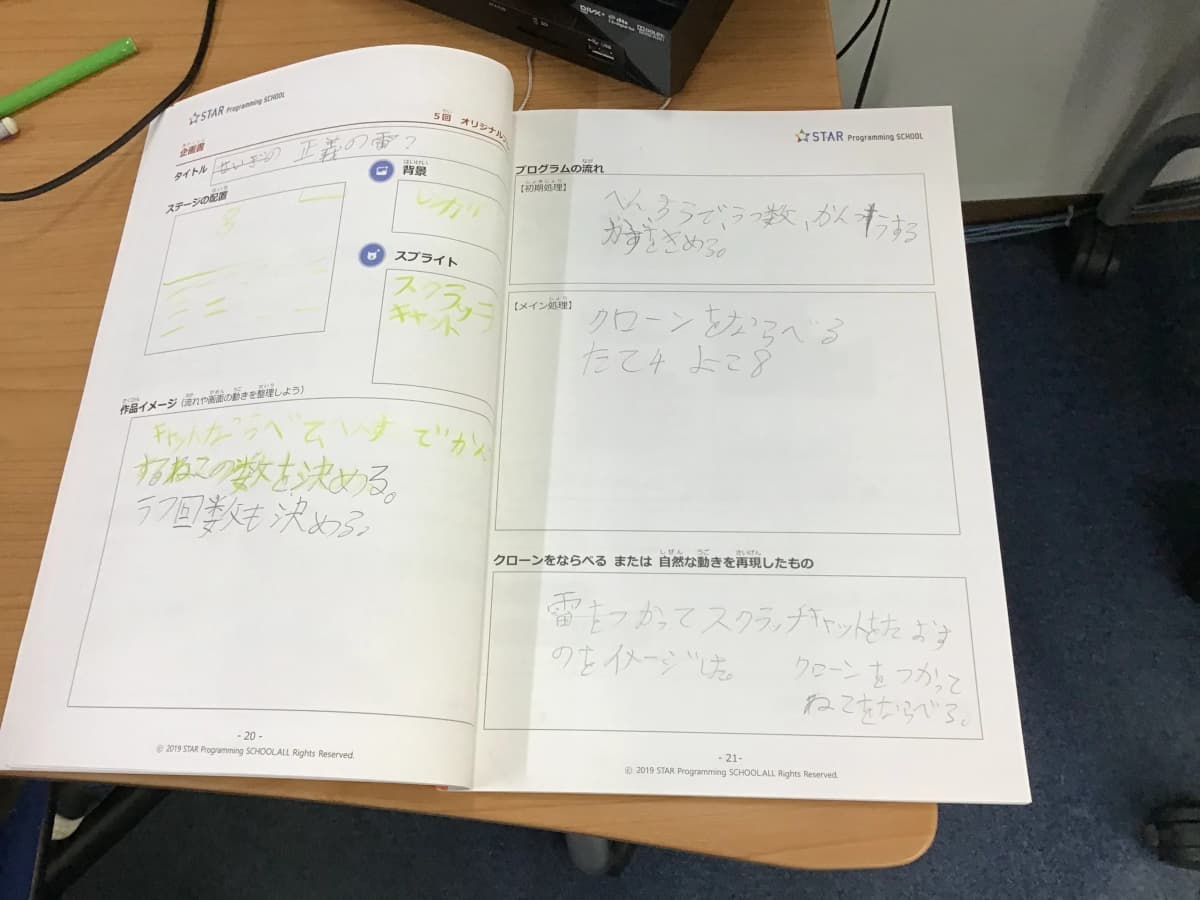 STAR Programming SCHOOL
5回 オリジナル
企画書
タイトル
正義の雷?
ステージの配置
背景
はいけい
レンガ
スプライト
スクラッチ
キャット
作品イメージ(流れや画面の動きを整理しよう)
さくひん なが がめん うご せいり
キャットならべて、
するねこの数を決める。
うつ回数も決める。
- 20 -
© 2019 STAR Programming SCHOOL.ALL Rights Reserved.
STAR Programming SCHOOL
プログラムの流れ
なが
【初期処理】
しょきしょり
へんすうで、うつ数、かんつうする
かずをきめる。
【メイン処理】
しょり
クローンをならべる
たて4 よこ8
クローンをならべる または 自然な動きを再現したもの
しぜん うご さいげん
雷をつかってスクラッチキャットをたおす
のをイメージした。
クローンをつかって
ねこをならべる。
- 21-
© 2019 STAR Programming SCHOOL.ALL Rights Reserved.
DIVX+
DOLBY
USB